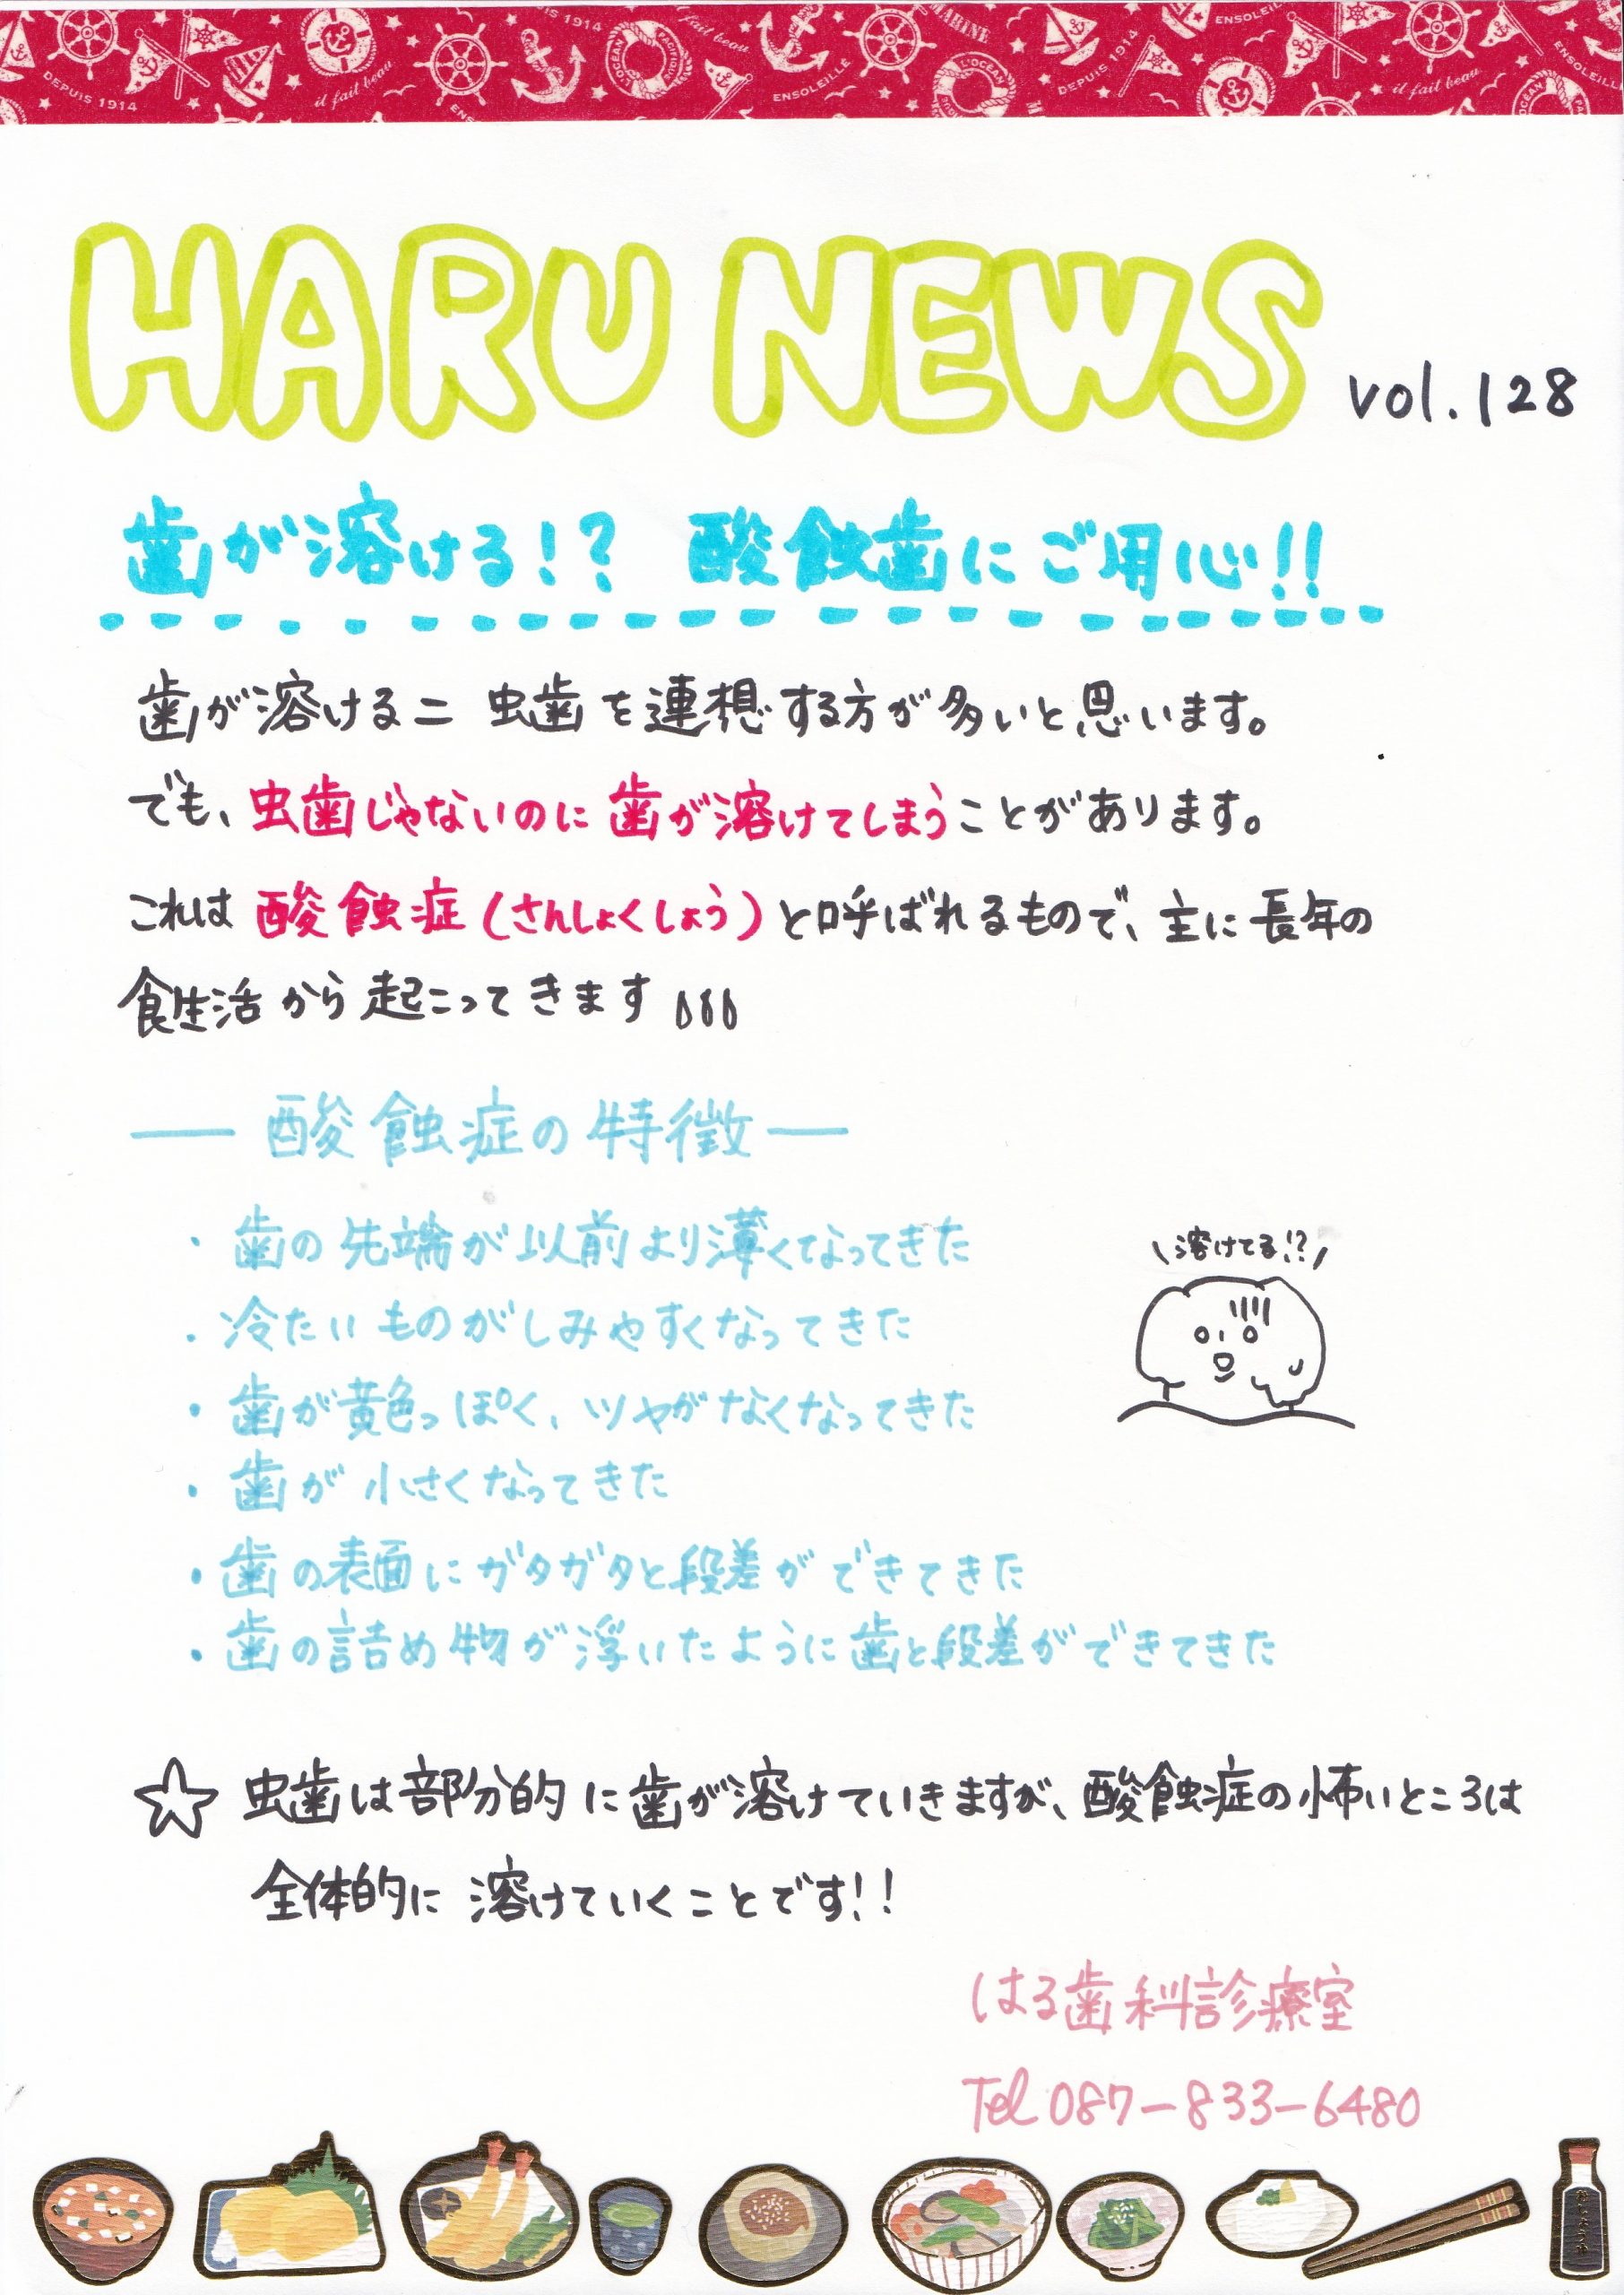 DEPUIS 1914
il fait beau
L'OCÉAN PACIFIQUE
il fait beau
ENSOLEILLÉ
MARINE
L'OCÉAN
DEPUIS 1914
ENSOLEILLÉ
il fait beau
HARU NEWS vol.128
歯が溶ける!? 酸蝕歯にご用心!!
歯が溶ける＝虫歯を連想する方が多いと思います。
でも、虫歯じゃないのに歯が溶けてしまうことがあります。
これは酸蝕症(さんしょくしょう)と呼ばれるもので、主に長年の
食生活から起こってきます
― 酸蝕症の特徴 ―
・歯の先端が以前より薄くなってきた
・冷たいものがしみやすくなってきた
\溶けてる!?/
・歯が黄色っぽく、ツヤがなくなってきた
・歯が小さくなってきた
・歯の表面にガタガタと段差ができてきた
・歯の詰め物が浮いたように歯と段差ができてきた
☆ 虫歯は部分的に歯が溶けていきますが、酸蝕症の怖いところは
全体的に溶けていくことです!!
はる歯科診療室
Tel 087-833-6480